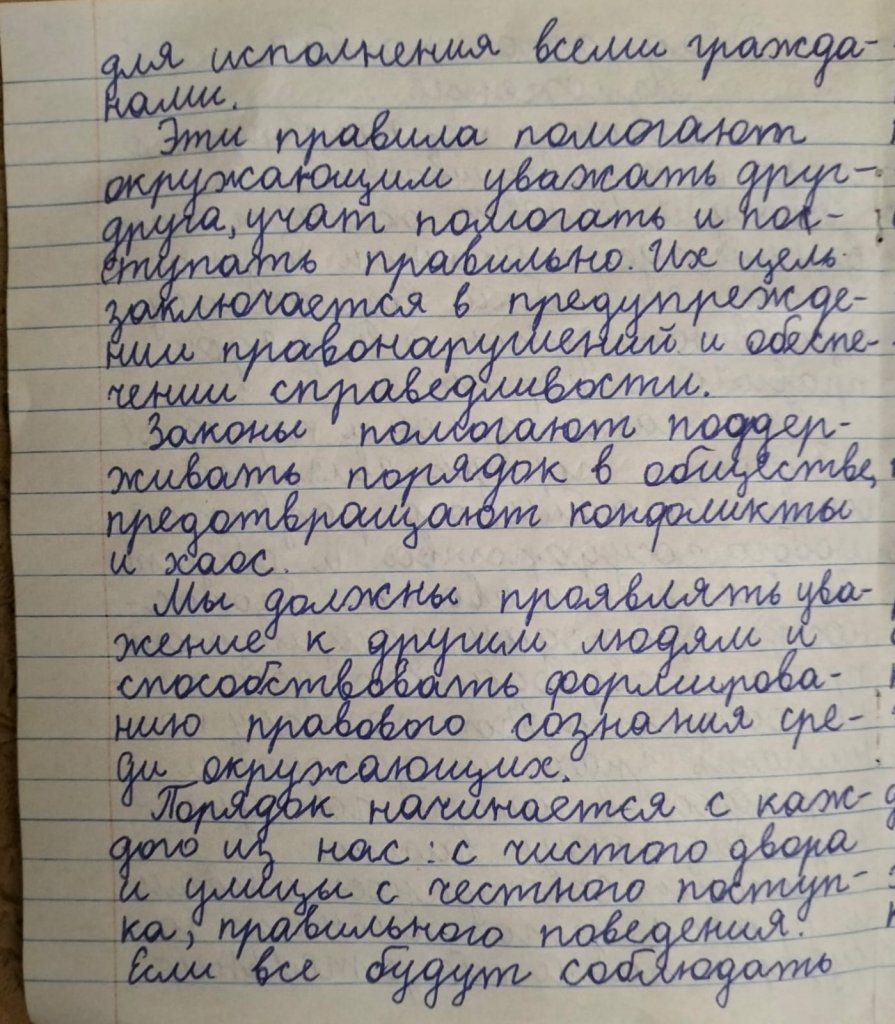 для исполнения всеми гражда-
нами.
Эти правила помогают
окружающим уважать друг-
друга, учат помогать и пос-
ступать правильно. Их цель
заключается в предупрежде-
нии правонарушений и обеспе-
чении справедливости.
Законы помогают поддер-
живать порядок в обществе,
предотвращают конфликты
и хаос.
Мы должны проявлять ува-
жение к другим людям и
способствовать формирова-
нию правового сознания сре-
ди окружающих.
Порядок начинается с каж-
дого из нас: с чистого двора
и улицы с честного поступ-
ка, правильного поведения.
Если все будут соблюдать